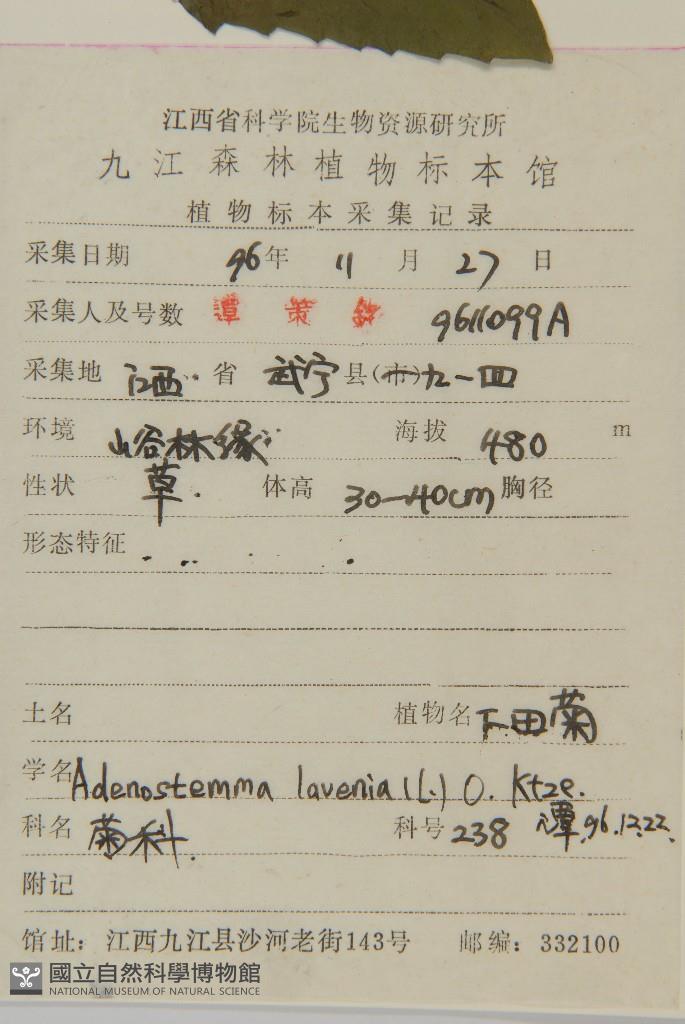 江西省科学院生物资源研究所
九江森林植物标本馆
植物标本采集记录
采集日期 96年 11月 27日
采集人及号数 譚策銘 9611099A
采集地 江西省 武宁县(市)九一四
环境 峪谷林缘 海拔 480 m
性状 草. 体高 30-40cm 胸径
形态特征
土名 植物名 下田菊
学名 Adenostemma lavenia (L.) O. Ktze.
科名 菊科. 科号 238 譚.96.12.22.
附记
馆址：江西九江县沙河老街143号 邮编：332100
國立自然科學博物館
NATIONAL MUSEUM OF NATURAL SCIENCE